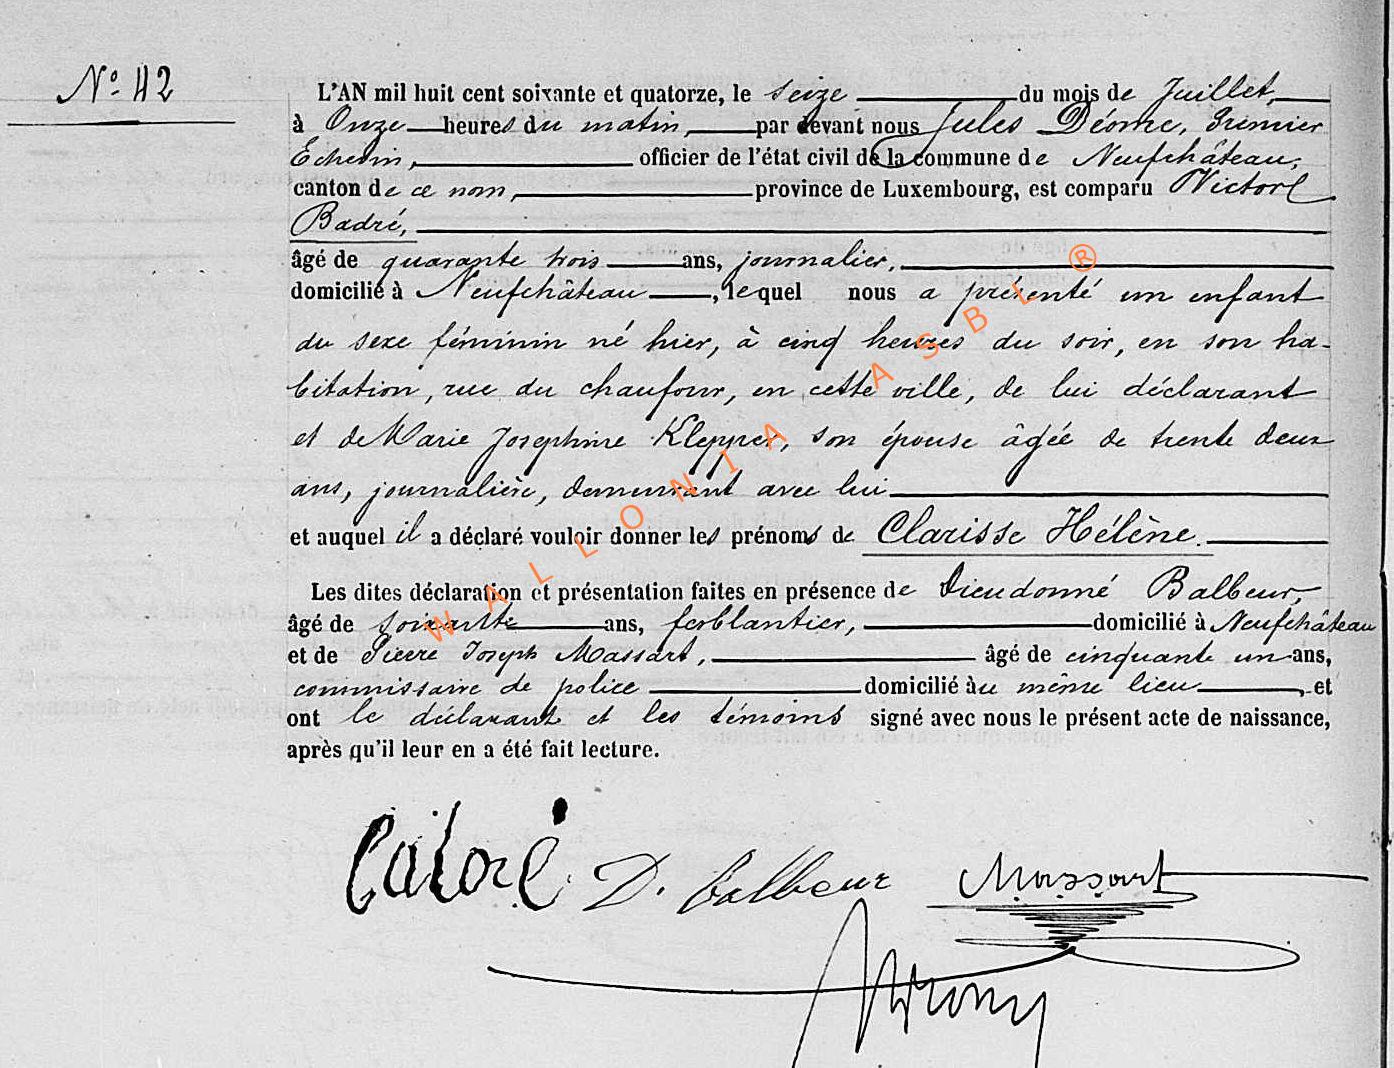 N° 42
L'AN mil huit cent soixante et quatorze, le seize du mois de Juillet,
à Onze heures du matin, par devant nous Jules Déome, Premier
Echevin, officier de l'état civil de la commune de Neufchâteau,
canton de ce nom, province de Luxembourg, est comparu Victor
Badré,
âgé de quarante trois ans, journalier,
domicilié à Neufchâteau, lequel nous a présenté un enfant
du sexe féminin né hier, à cinq heures du soir, en son ha-
bitation, rue du chaufour, en cette ville, de lui déclarant
et de Marie Josephine Klepper, son épouse âgée de trente deux
ans, journalière, demeurant avec lui
et auquel il a déclaré vouloir donner les prénoms de Clarisse Hélène.
Les dites déclaration et présentation faites en présence de Dieudonné Balbeur,
âgé de soixante ans, ferblantier, domicilié à Neufchâteau
et de Pierre Joseph Massart, âgé de cinquante un ans,
commissaire de police domicilié au même lieu, et
ont le déclarant et les témoins signé avec nous le présent acte de naissance,
après qu'il leur en a été fait lecture.
D. Balbeur Massart
WALLONIA ASBL ®